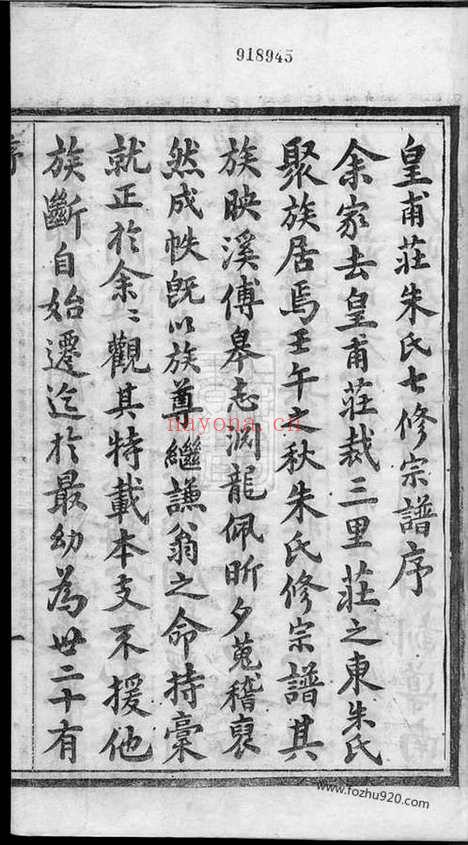 918945
皇甫莊朱氏七修宗譜序
余家去皇甫莊裁三里莊之東朱氏
聚族居焉壬午之秋朱氏修宗譜其
族映溪傅皋志淵龍佩昕夕蒐稽裒
然成帙既以族尊繼謙翁之命持稾
就正於余〻觀其特載本支不援他
族斷自始遷迄於最幼為世二十有
序
一
nayona.cn
www.fozhu920.com